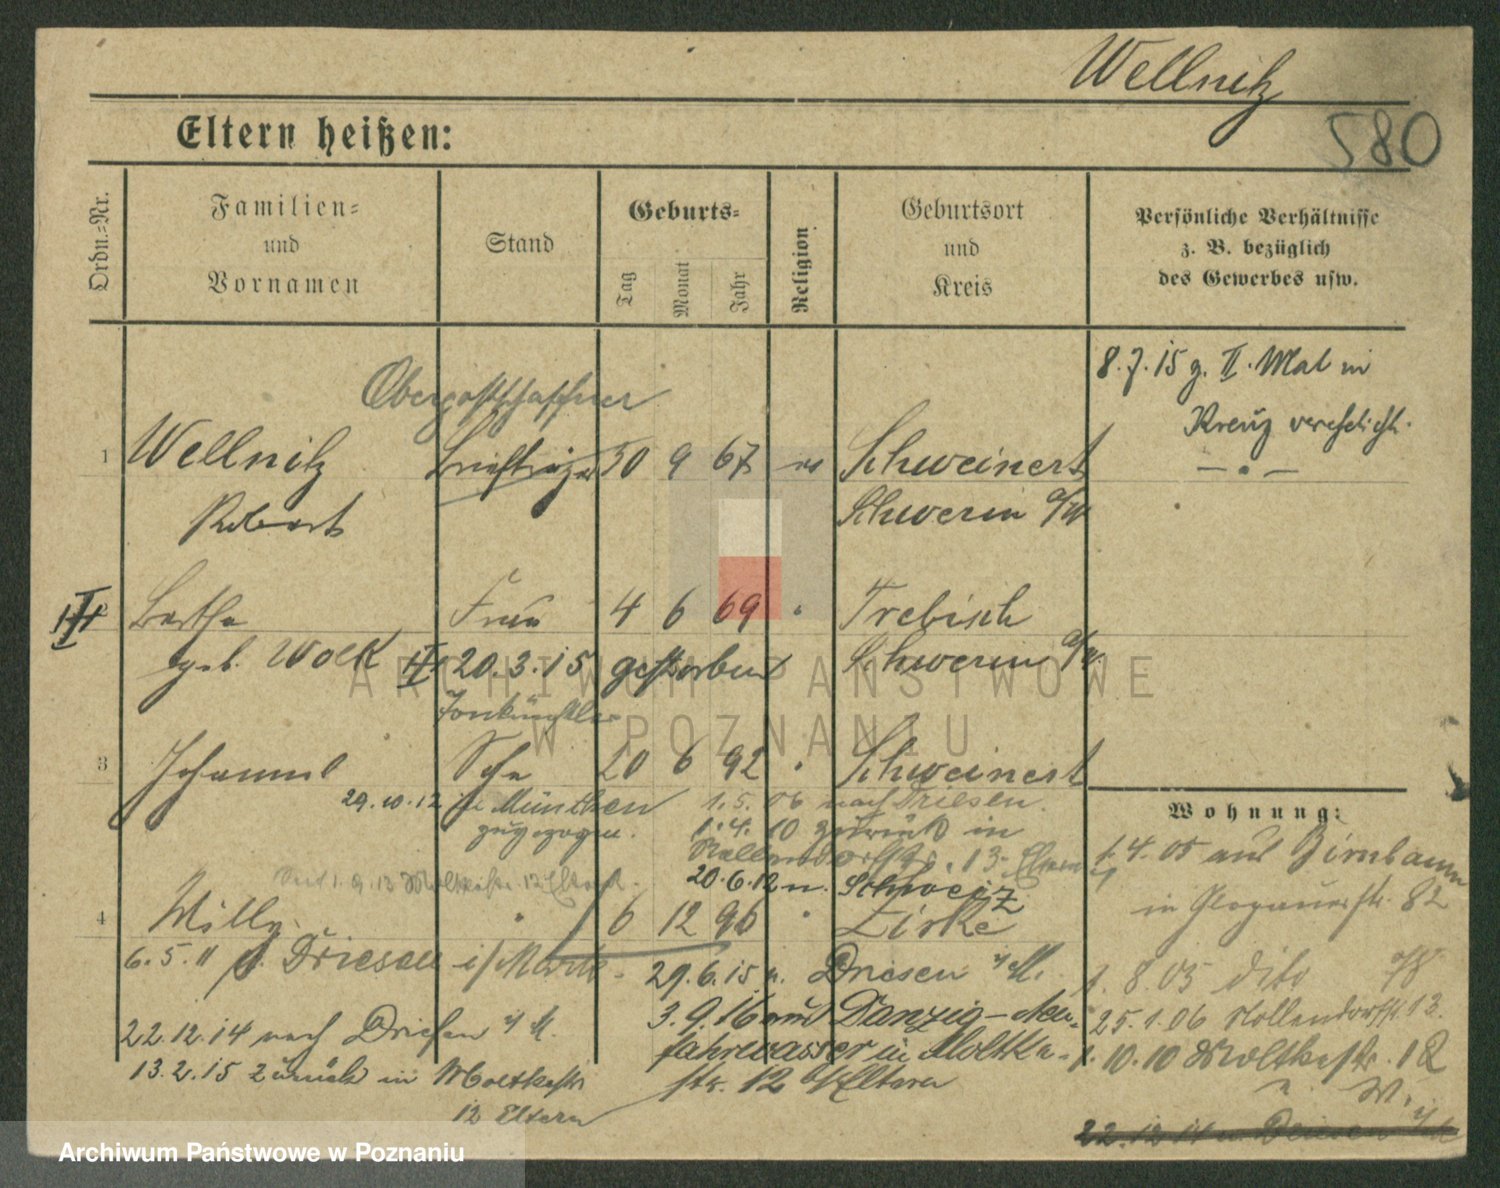 Wellnitz
580
Eltern heißen:
Ordn.-Nr.
Familien-
und
Vornamen
Stand
Geburts-
Tag
Monat
Jahr
Religion
Geburtsort
und
Kreis
Persönliche Verhältnisse
z. B. bezüglich
des Gewerbes usw.
8.7.15 z. II. Mal in
Kreuz verehelicht.
Oberpostschaffner
1 Wellnitz Briefträger 30 9 67 ev Schweinert
Robert Schwerin a/W
Bertha Frau 4 6 69 " Trebisch
geb. Wolk 20.3.15 gestorben Schwerin a/W.
Tonkünstler
3 Johannes Sohn 20 6 92 " Schweinert
29.10.12 in München
zugezogen.
1.5.06 nach Driesen.
1.4.10 zurück in
13 Eltern
20.6.12 n. Schweiz
4 Willy " 6 12 96 " Zirke
6.5.11 n. Driesen i/Mark.
29.6.15 n. Driesen i/M.
22.12.14 nach Driesen i/M.
3.9.16 aus Danzig-Neu-
fahrwasser in Moltke-
str. 12 b/Eltern
13.2.15 zurück in Moltkestr
12 Eltern
Wohnung:
1.4.05 aus Birnbaum
in Glogauerstr. 82
1. 8. 05 dito 78
25.1.06 Nollendorfstr. 13.
1.10.10 Moltkestr. 12
22.12.14 n. Driesen i/M
ARCHIWUM PAŃSTWOWE
W POZNANIU
Archiwum Państwowe w Poznaniu